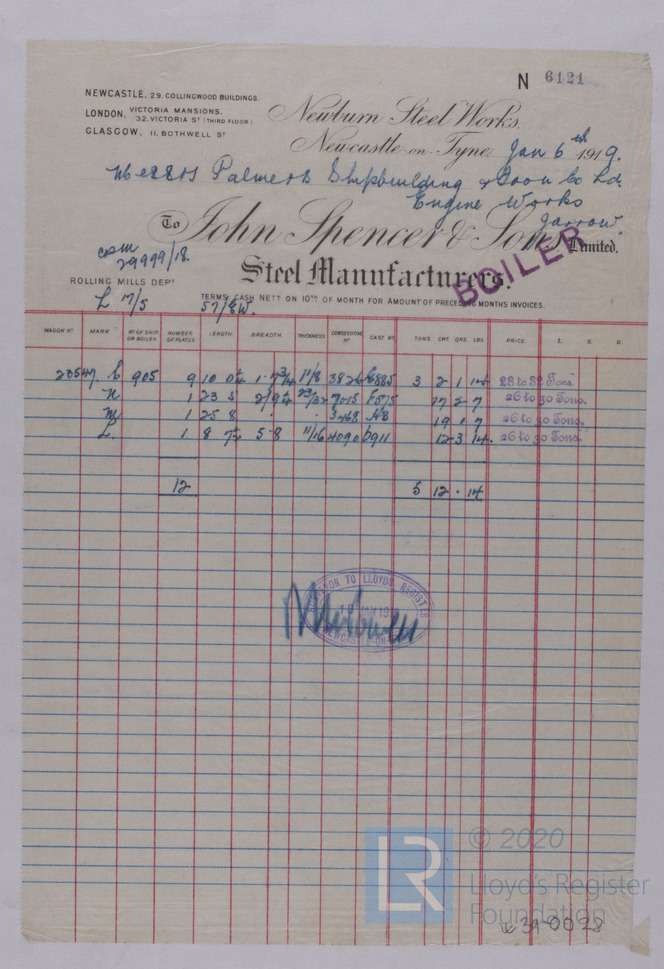 N 6121
NEWCASTLE, 29, COLLINGWOOD BUILDINGS.
LONDON, VICTORIA MANSIONS,
32, VICTORIA ST (THIRD FLOOR)
GLASGOW, 11, BOTHWELL ST
Newburn Steel Works,
Newcastle-on-Tyne, Jan 6th 1919.
Messrs Palmers Shipbuilding & Iron Co Ld.
Engine Works
Jarrow.
To John Spencer & Sons, Limited.
29999/18.
Steel Manufacturers.
BOILER
ROLLING MILLS DEPT
L 17/5
TERMS: CASH NETT ON 10TH OF MONTH FOR AMOUNT OF PRECEDING MONTHS INVOICES.
57/EW.
WAGON No MARK No OF SHIP OR BOILER NUMBER OF PLATES LENGTH. BREADTH. THICKNESS CONSECUTIVE No CAST No TONS. CWT. QRS. LBS. PRICE. £. S. D.
23547 C 905 9 10 0½ 1·7¾ 1 1/8 3826 6885 3 2 1 14 28 to 32 Tons
N 1 23 5 2/9½ 23/32 7015 17 2 7 26 to 30 Tons.
M 1 25 8 · · 3468 19 1 7 26 to 30 Tons.
L. 1 8 7½ 5·8 11/16 4090 6911 12 3 14. 26 to 30 Tons.
12 5 12 · 14
SURVEYOR TO LLOYD'S REGISTER
JAN 19
NEWCASTLE-ON-
LR
© 2020
Lloyd's Register
Foundation
39-0028